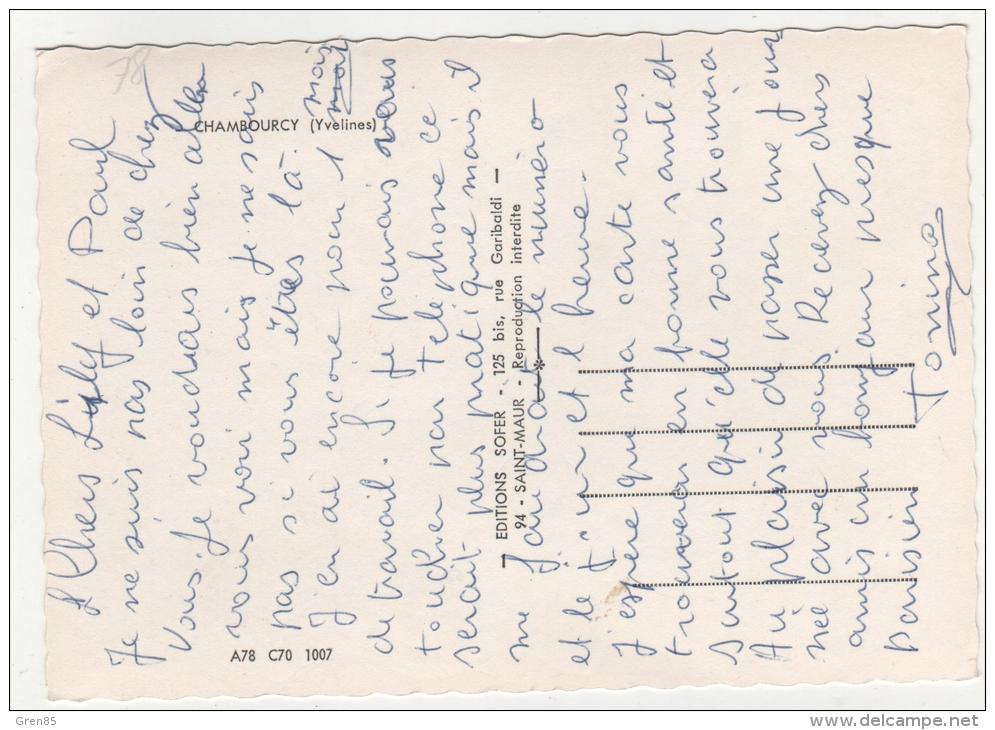 Chers Lily et Paul
Je ne suis pas loin de chez
vous. Je voudrais bien aller
vous voir mais je ne sais
pas si vous êtes là.
J'en ai encore pour 1 mois
de travail. Si je pouvais vous
toucher par telephone ce
serait plus pratique mais il
me faudrait le numéro
et le jour et l heure.
J'espère que ma carte vous
trouvera en bonne santé et
surtout qu'elle vous trouvera
Au plaisir de passer une jour
née avec vous. Recevez chers
amis un bonjour presque
parisien
Tonino
CHAMBOURCY (Yvelines)
EDITIONS SOFER - 125 bis, rue Garibaldi
94 - SAINT-MAUR - Reproduction interdite
A78 C70 1007
78
Gren85
www.delcampe.net